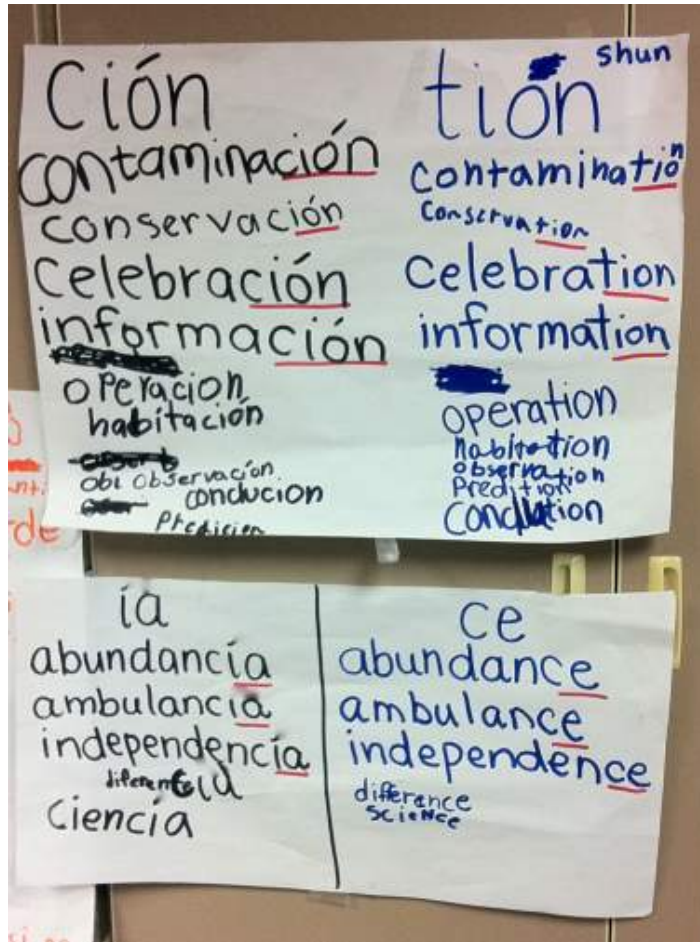 Ción
contaminación
conservación
celebración
información
operacion
habitación
obi observación
conducion
Predicion
shun
tión
contamination
Conservation
celebration
information
operation
habitation
observation
Predition
ia
abundancia
ambulancia
independencia
ciencia
ce
abundance
ambulance
independence
difference
science